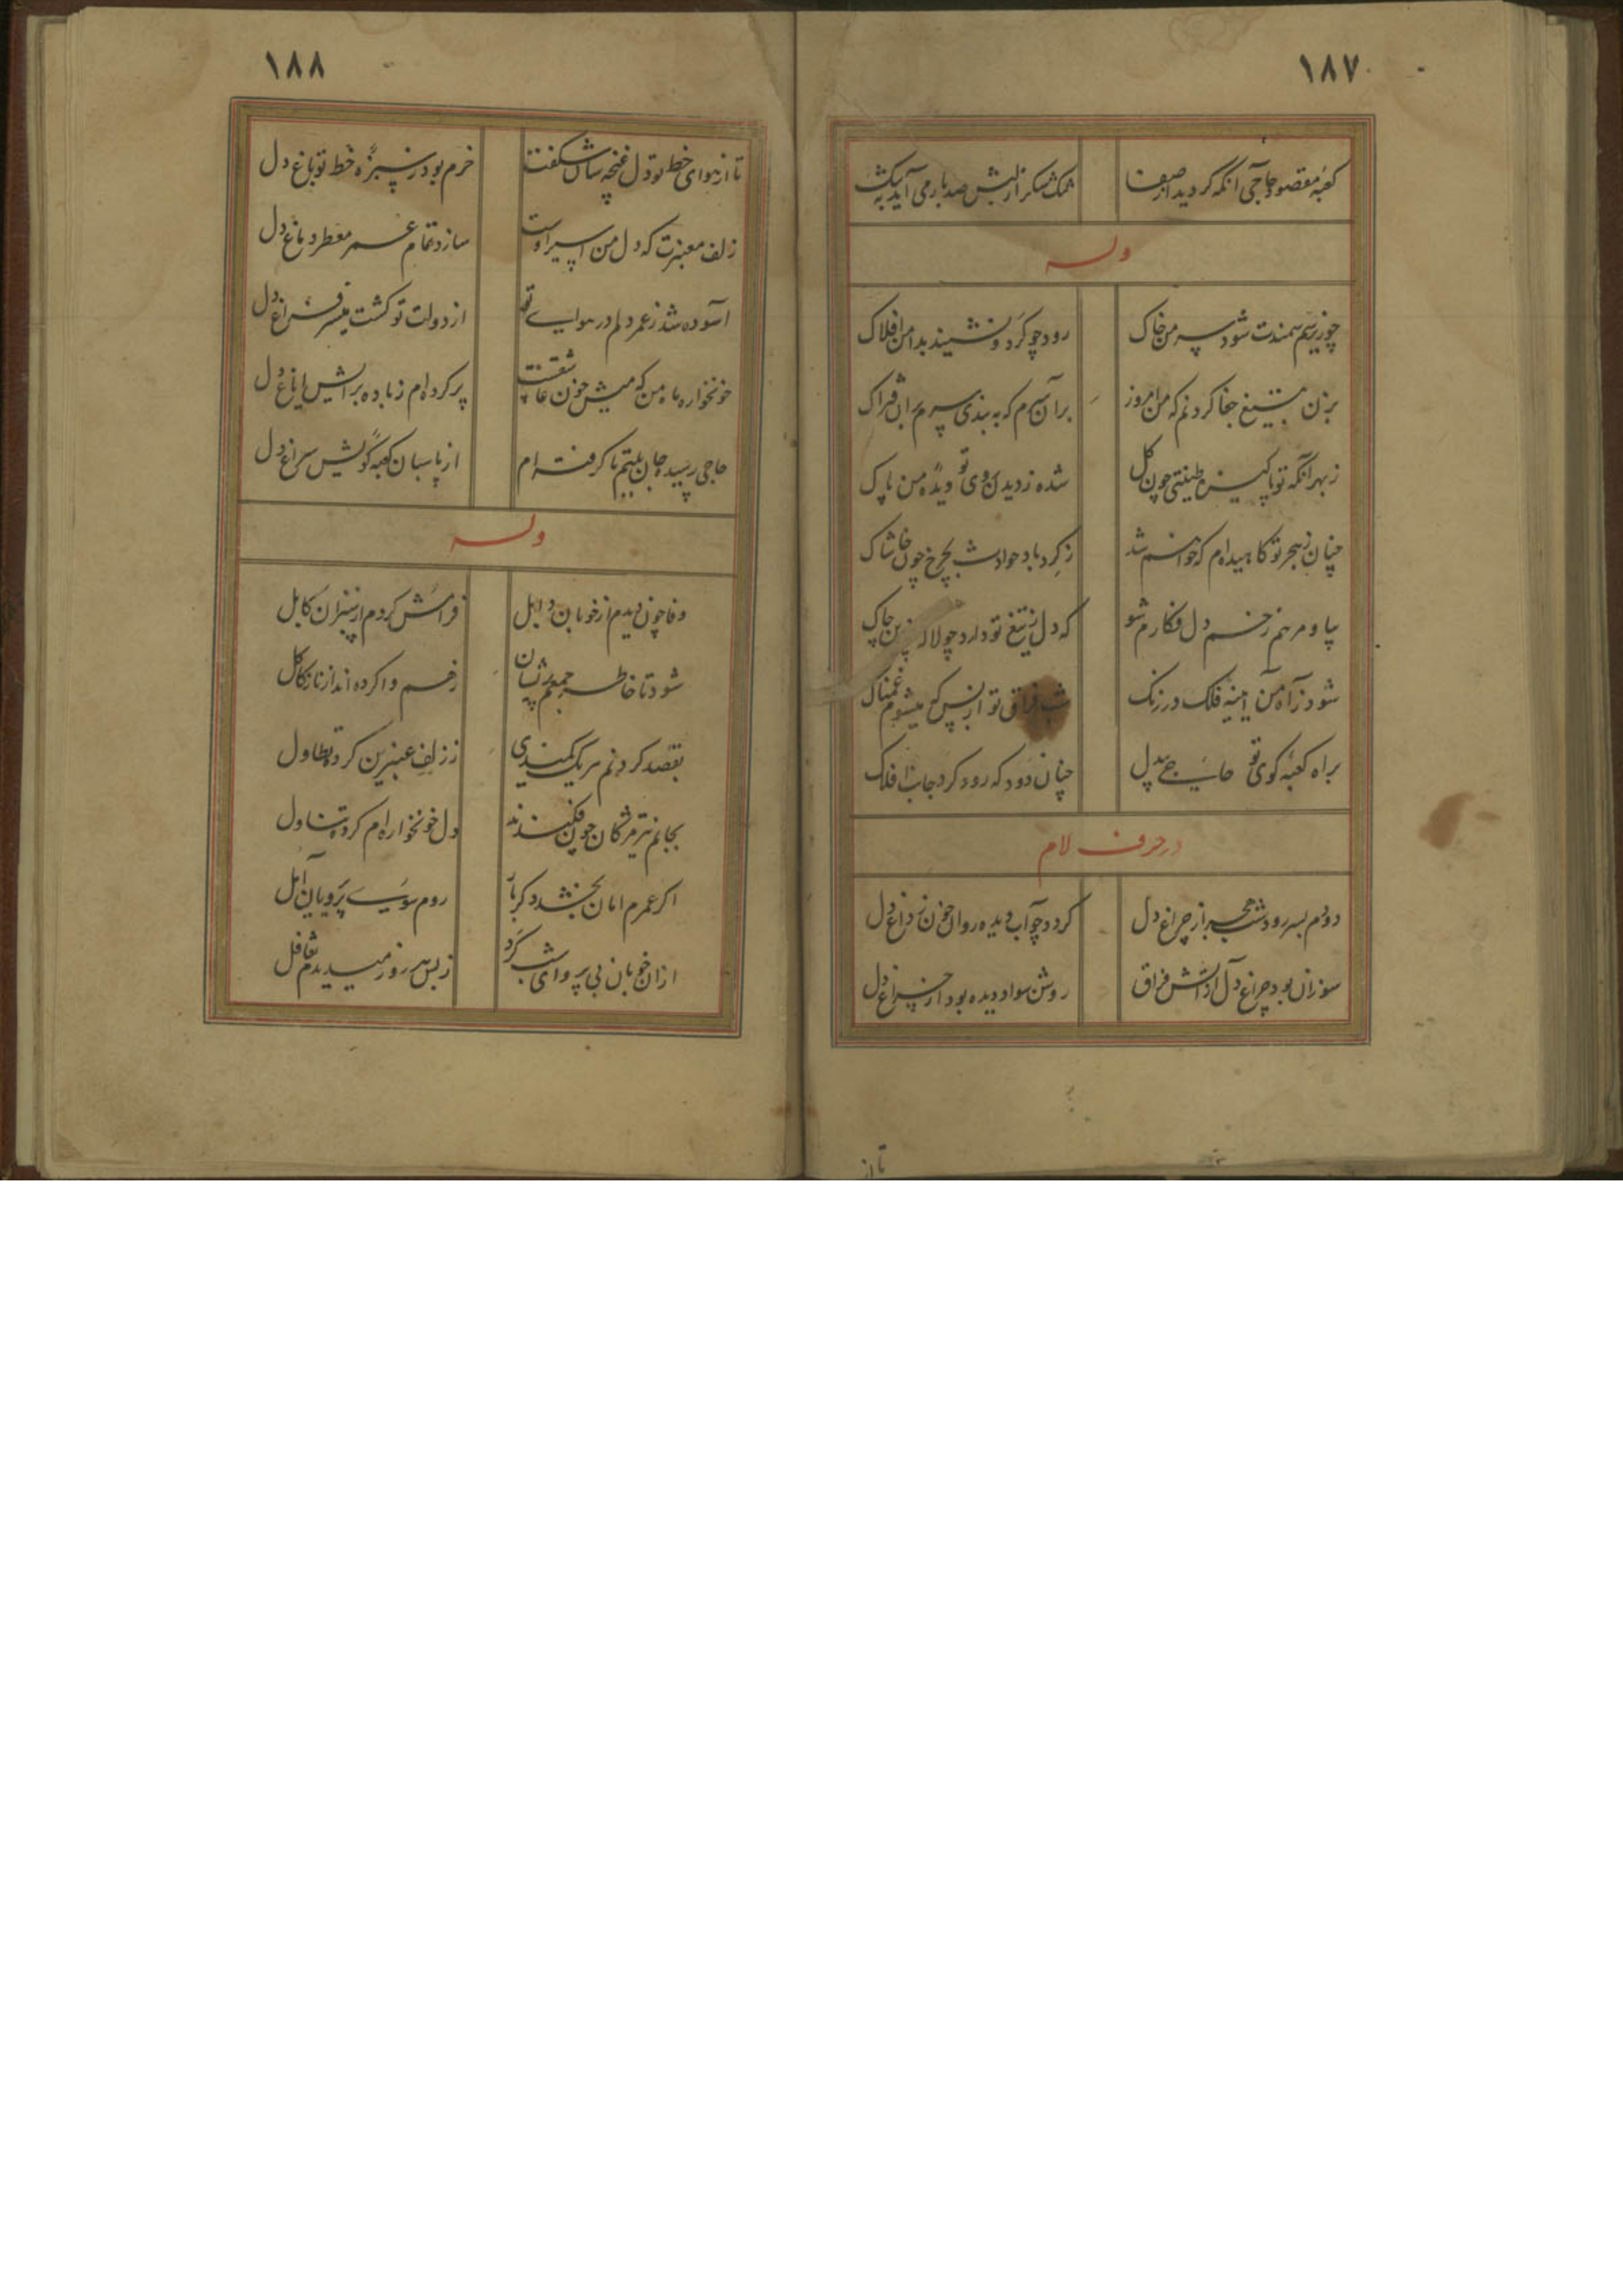 ۱۸۷
کعبه مقصود حاجی آنکه گردید از صفا نمک شکر از لبش صد بار می آید به
وله
چو زیر سم سمندت شود سر من خاک رود چو گرد و نشیند بدامن افلاک
بزن به تیغ جفا گردنم که من امروز بر آن سرم که به بندی سرم بران فتراک
ز بهر آنکه تو پاکیزه طینتی چون گل شده ز دیدن روی تو دیده من پاک
چنان ز هجر تو کاهیده ام که خواهم شد ز گرد باد حوادث بچرخ چون خاشاک
بیا و مرهم زخم دل فکارم شو که دل ز تیغ تو دارد چو لاله چاک
شود ز آه من آیینه فلک در زنگ شب فراق تو از بس که میشوم غمناک
براه کعبه کوی تو حاجی بیدل چنان دود که رود گرد جانب افلاک
در حرف لام
دودم بسر رود شب هجر از چراغ دل گردد چو آب دیده روان خون ز داغ دل
سوزان بود چراغ دل از آتش فراق روشن سواد دیده بود از چراغ دل
تا از
۱۸۸
تا از هوای خط تو دل غنچه سان شکفت خرم بود ز سبزه خط تو باغ دل
زلف معنبرت که دل من اسیر اوست سازد تمام عمر معطر دماغ دل
آسوده شد ز عمر دلم در هوای تو از دولت تو گشت میسر فراغ دل
خونخواره ماه من که میش خون عاشقست پر کرده ام ز باده براتش ایاغ دل
حاجی رسید جان بلبم تا گرفته ام از پاسبان کعبه کویش سراغ دل
وله
وفا چون دیدم از خوبان زابل فراموش کردم از سبزان کابل
شود تا خاطر جمعم پریشان ز هم وا کرده اند از ناز کاکل
بقصد گردنم هریک کمندی ز زلف عنبرین کرده تطاول
بجانم تیر مژگان چون فکندند دل خونخواره ام کرده تناول
اگر عمرم امان بخشد دگر بار روم سوی پریرویان آمل
ازان خوبان بی پروای شب گرد ز بس هر روز میدیدم تغافل